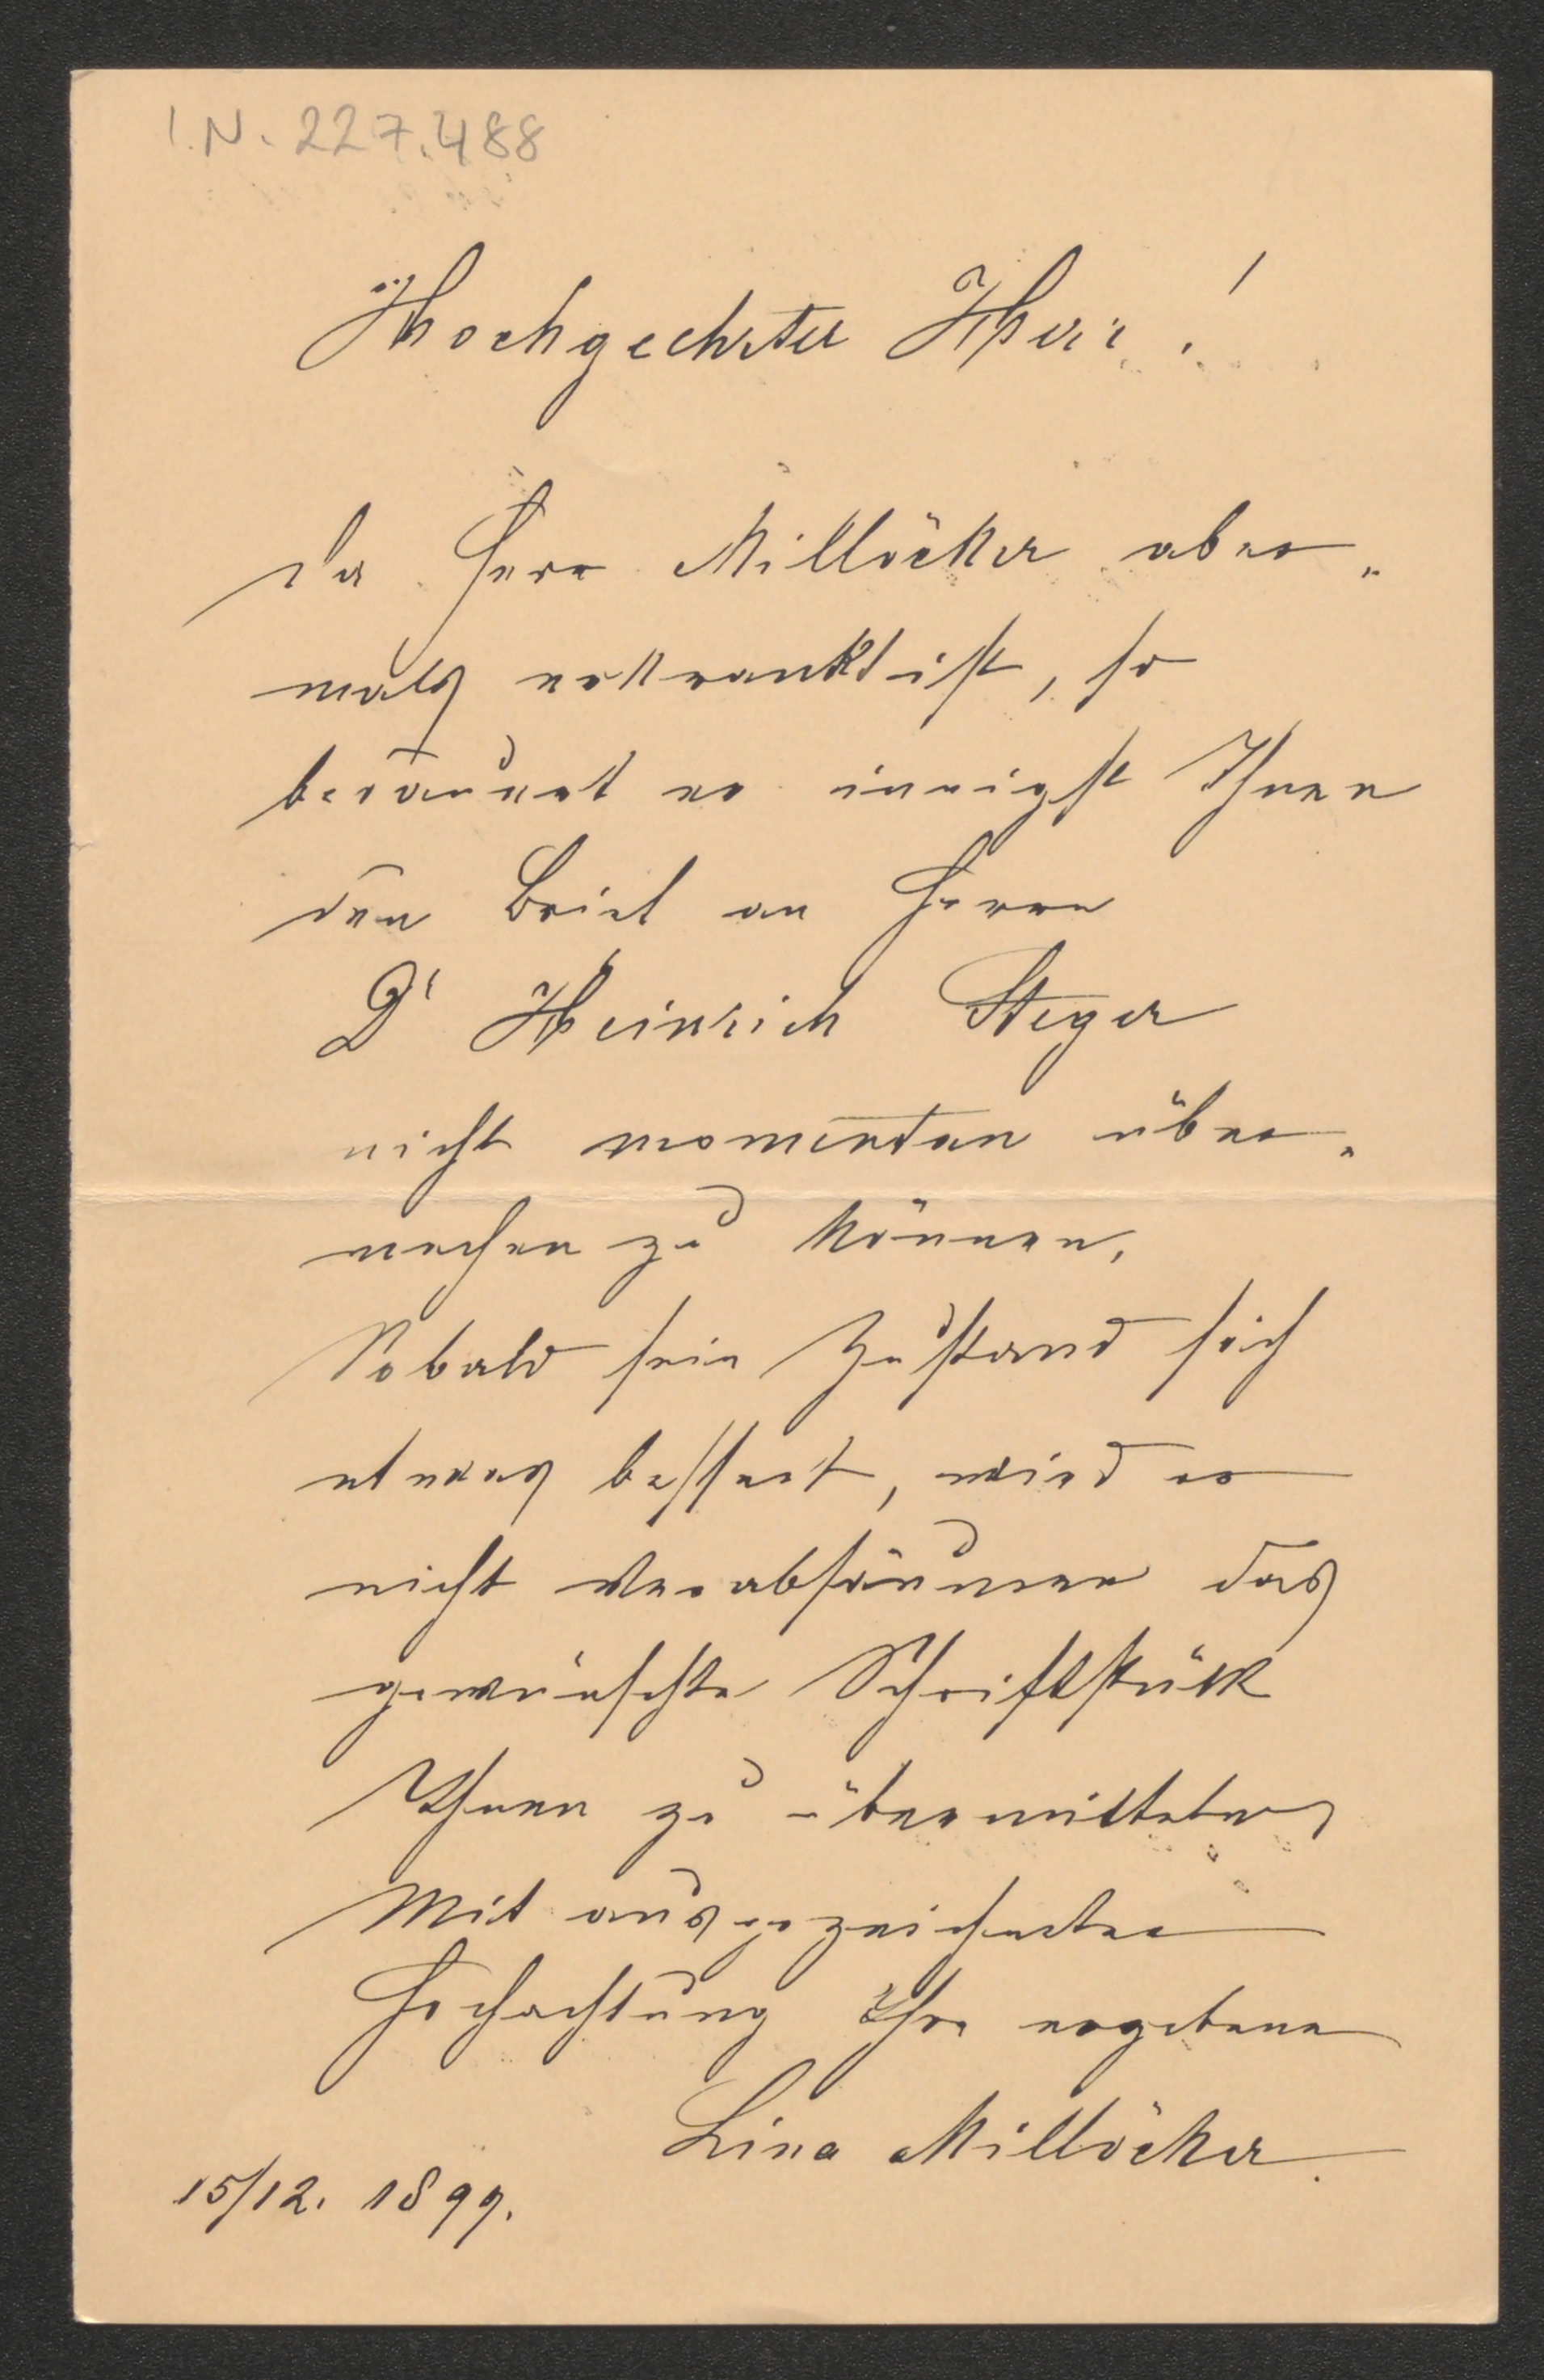 I.N. 227.488
Hochgeehrter Herr!
Da Herr Millöcker aber„
mals erkrankt ist, so
bedauert er innigst Ihnen
den Brief an Herrn
Dr Heinrich Steger
nicht momentan über„
machen zu können.
Sobald sein Zustand sich
etwas bessert, wird er
nicht verabsäumen das
gewünschte Schriftstück
Ihnen zu übermitteln
Mit ausgezeichneter
Hochachtung Ihre ergebene
Lina Millöcker.
15/12. 1899.